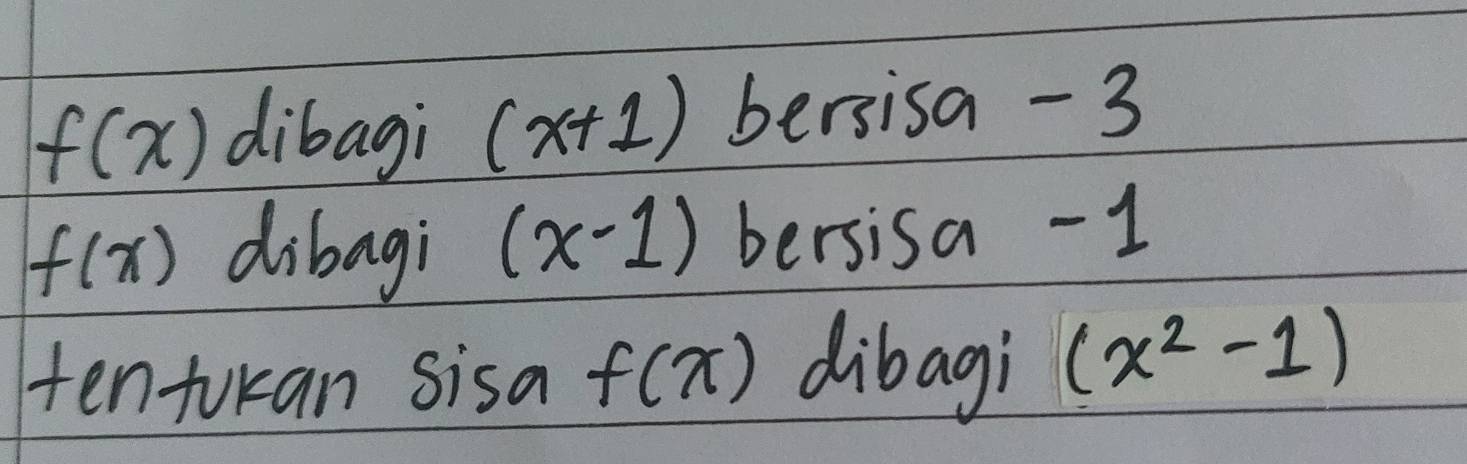 f(x) dibagi (x+1) bersisa -3
f(x) dibagi (x-1) bersisa -1
tentukan sisa f(x) dibagi (x² -1)